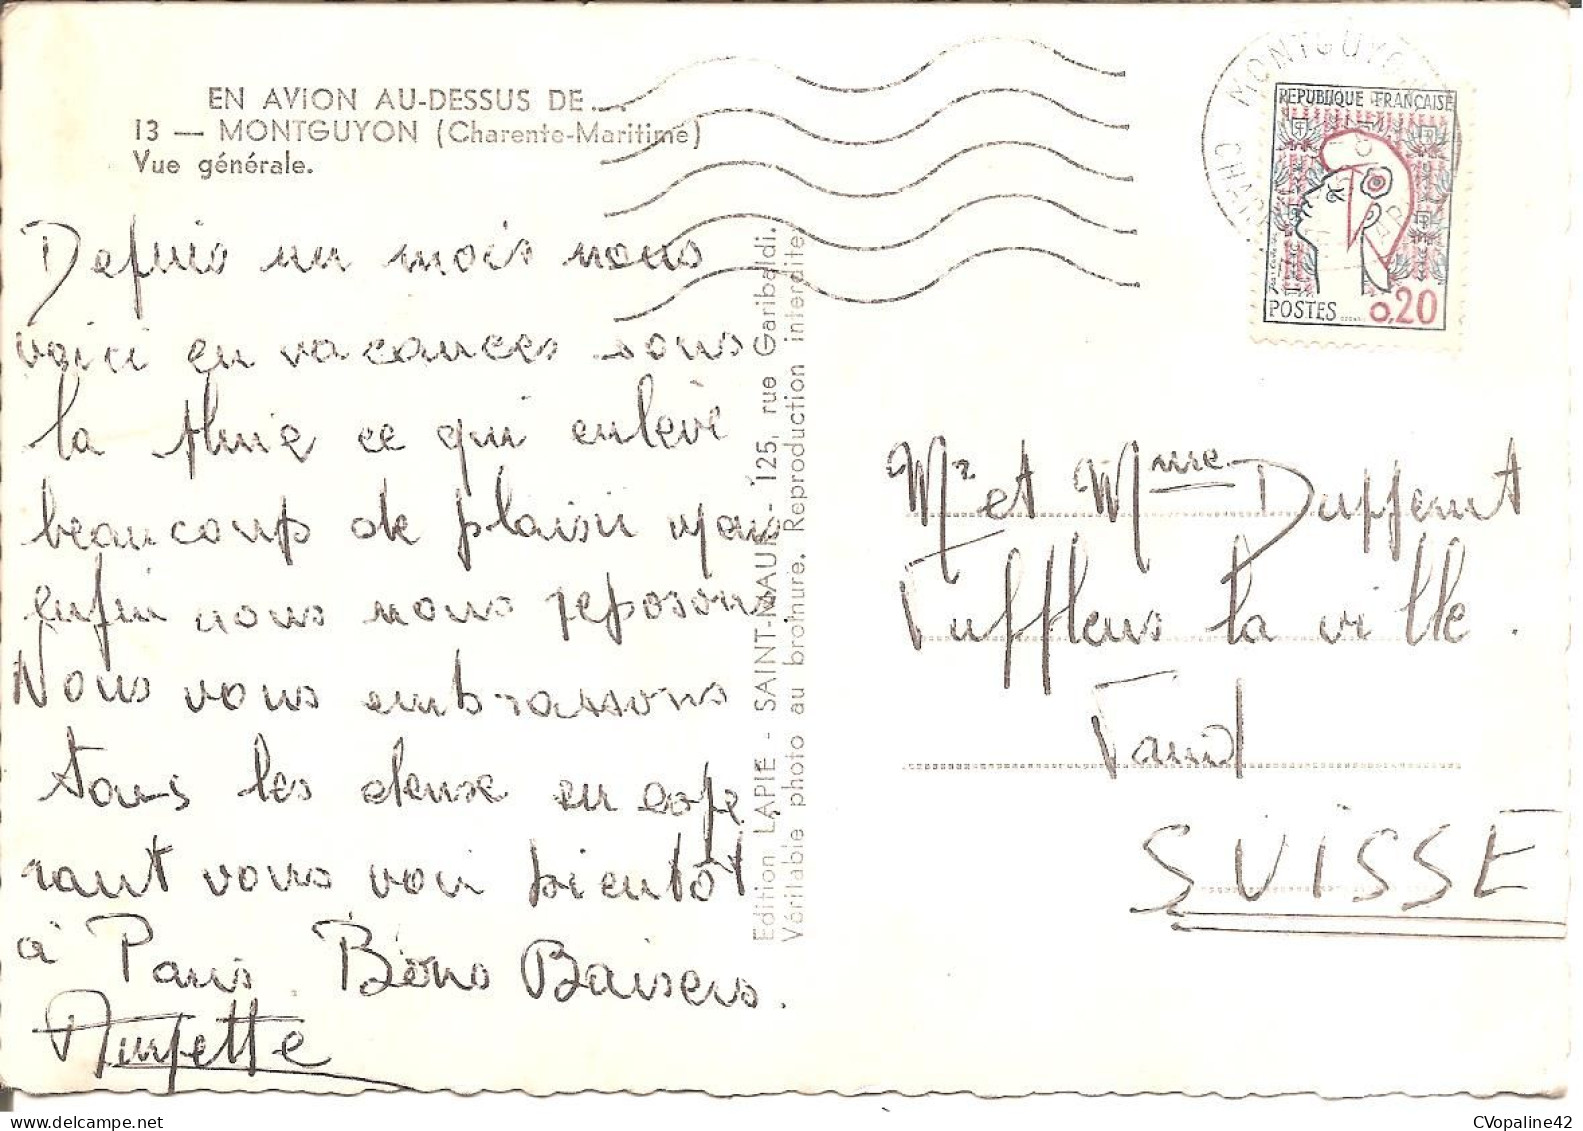 EN AVION AU-DESSUS DE....
13 — MONTGUYON (Charente-Maritime)
Vue générale.
Depuis un mois nous
voici en vacances sous
la pluie ce qui enlève
beaucoup de plaisir mais
enfin nous nous reposons
Nous vous embrassons
tous les deux en espé
rant vous voir bientôt
à Paris. Bons Baisers.
Edition LAPIE - SAINT-MAUR - 125, rue Garibaldi.
Véritable photo au bromure. Reproduction interdite
MONTGUYON
REPUBLIQUE FRANÇAISE
POSTES 0,20
Mr et Mme
Vufflens la ville.
Vaud
SUISSE
CVopaline42